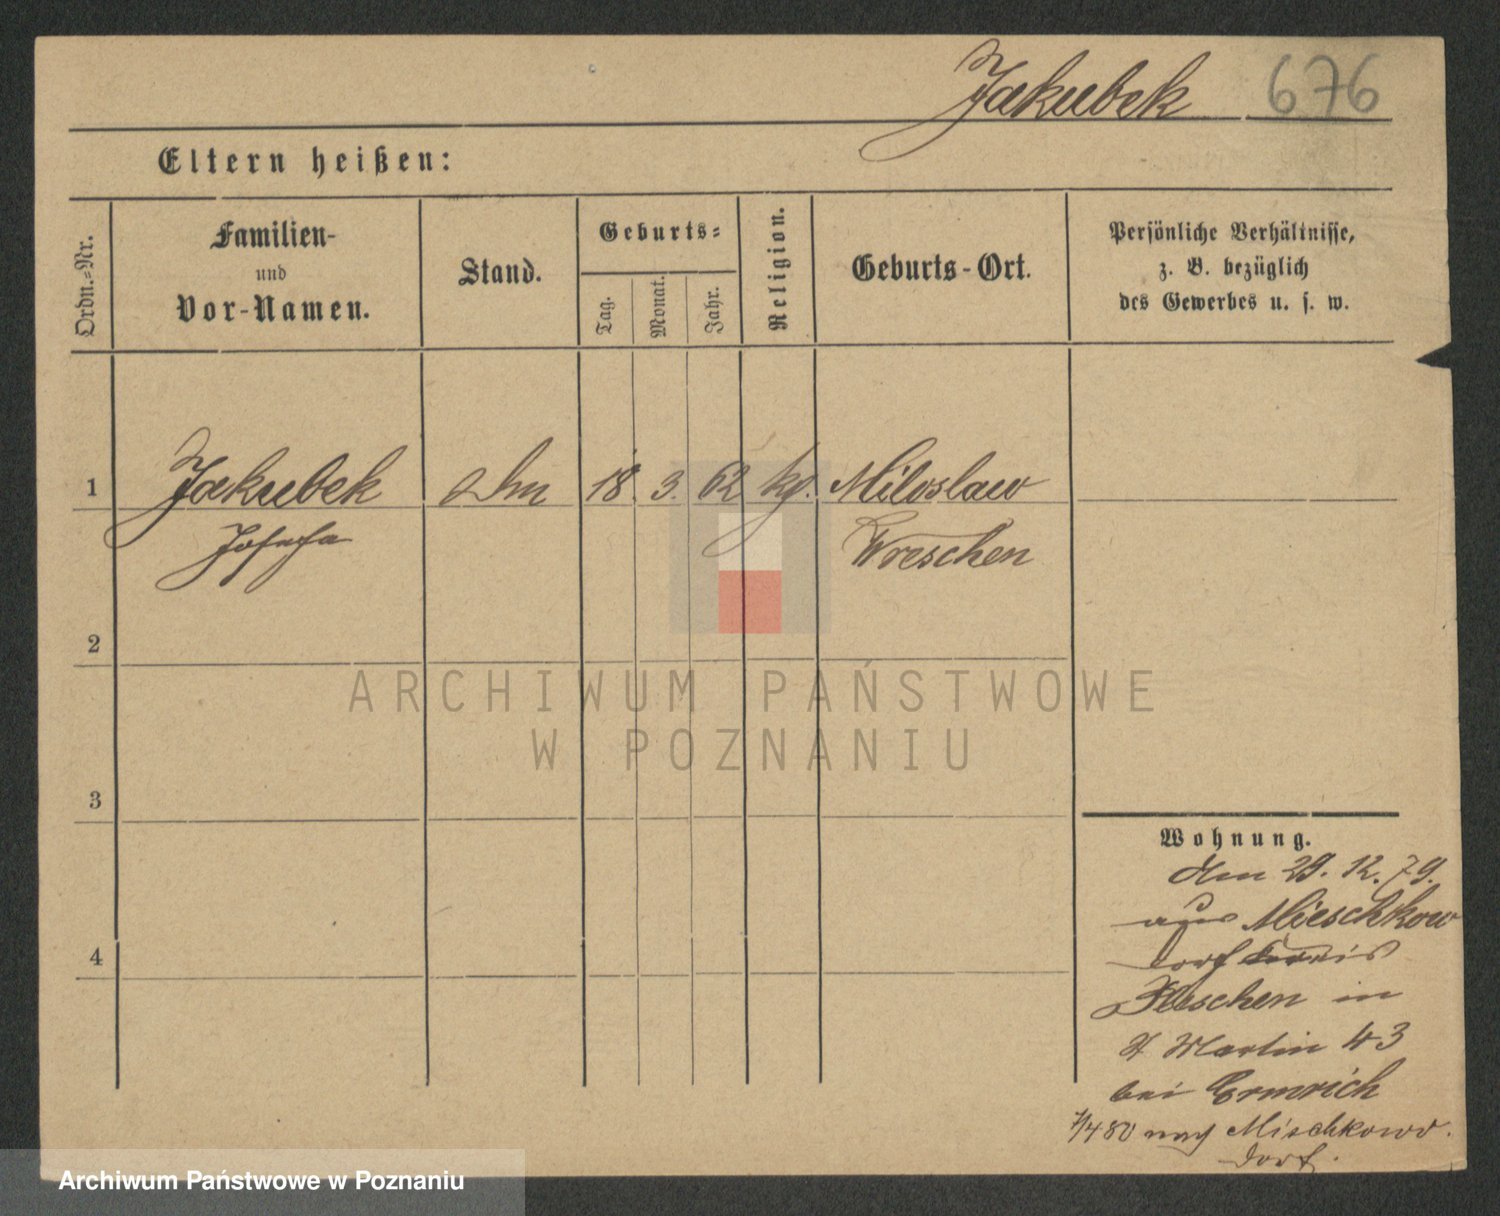 Jakubek 676
Eltern heißen:
Ordn.-Nr.
Familien-
und
Vor-Namen.
Stand.
Geburts-
Tag.
Monat.
Jahr.
Religion.
Geburts-Ort.
Persönliche Verhältnisse,
z. B. bezüglich
des Gewerbes u. s. w.
1 Jakubek 18. 3. 62 kg. Miloslaw
Josefa Wreschen
2
3
4
ARCHIWUM PAŃSTWOWE
W POZNANIU
Wohnung.
Am 29. 12. 79.
aus Mieschkow
dorf Kreis
Pleschen in
St Martin 43
bei Ermrich
7/4 80 nach Mischkowo.
dorf.
Archiwum Państwowe w Poznaniu